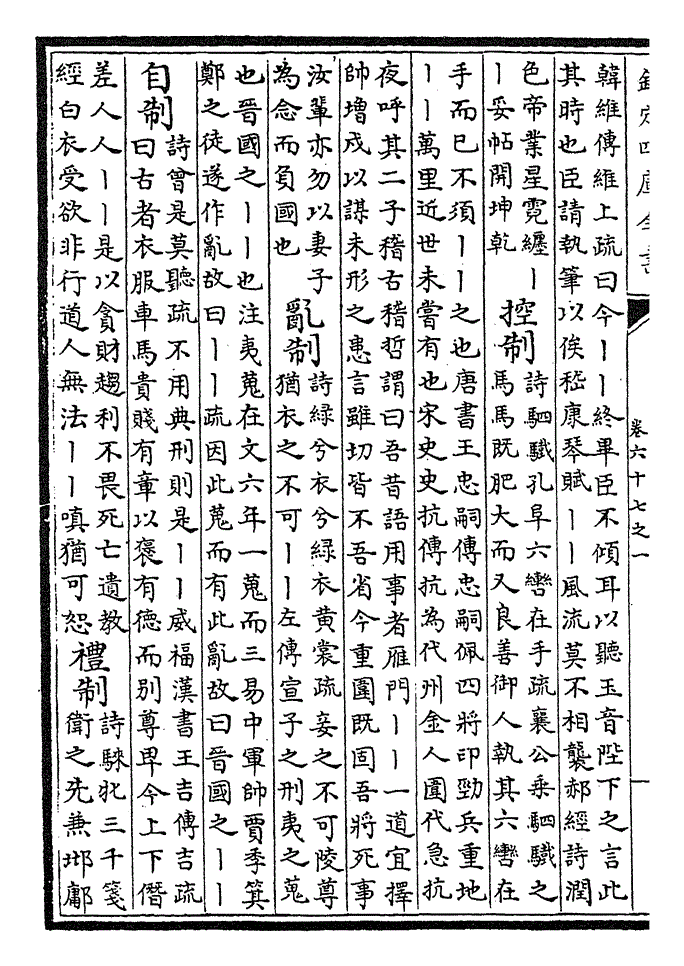 欽定四庫全書
卷六十七之一
一
韓維傳維上疏曰今丨丨終畢臣不傾耳以聽玉音陛下之言此
其時也臣請執筆以俟嵇康琴賦丨丨風流莫不相襲郝經詩潤
色帝業星霓纏丨
丨妥帖開坤乾
控制
詩駟驖孔阜六轡在手疏襄公乗駟驖之
馬馬既肥大而又良善御人執其六轡在
手而已不須丨丨之也唐書王忠嗣傳忠嗣佩四將印勁兵重地
丨丨萬里近世未嘗有也宋史史抗傳抗為代州金人圍代急抗
夜呼其二子稽古稽哲謂曰吾昔語用事者雁門丨丨一道宜擇
帥增戍以謀未形之患言雖切皆不吾省今重圍既固吾將死事
汝輩亦勿以妻子
為念而負國也
亂制
詩緑兮衣兮緑衣黃裳疏妾之不可陵尊
猶衣之不可丨丨左傳宣子之刑夷之蒐
也晉國之丨丨也注夷蒐在文六年一蒐而三易中軍帥賈季箕
鄭之徒遂作亂故曰丨丨疏因此蒐而有此亂故曰晉國之丨丨
自制
詩曾是莫聽疏不用典刑則是丨丨威福漢書王吉傳吉疏
曰古者衣服車馬貴賤有章以褒有德而别尊卑今上下僭
差人人丨丨是以貪財趨利不畏死亡遺教
經白衣受欲非行道人無法丨丨嗔猶可恕
禮制
詩騋牝三千箋
衛之先兼邶鄘